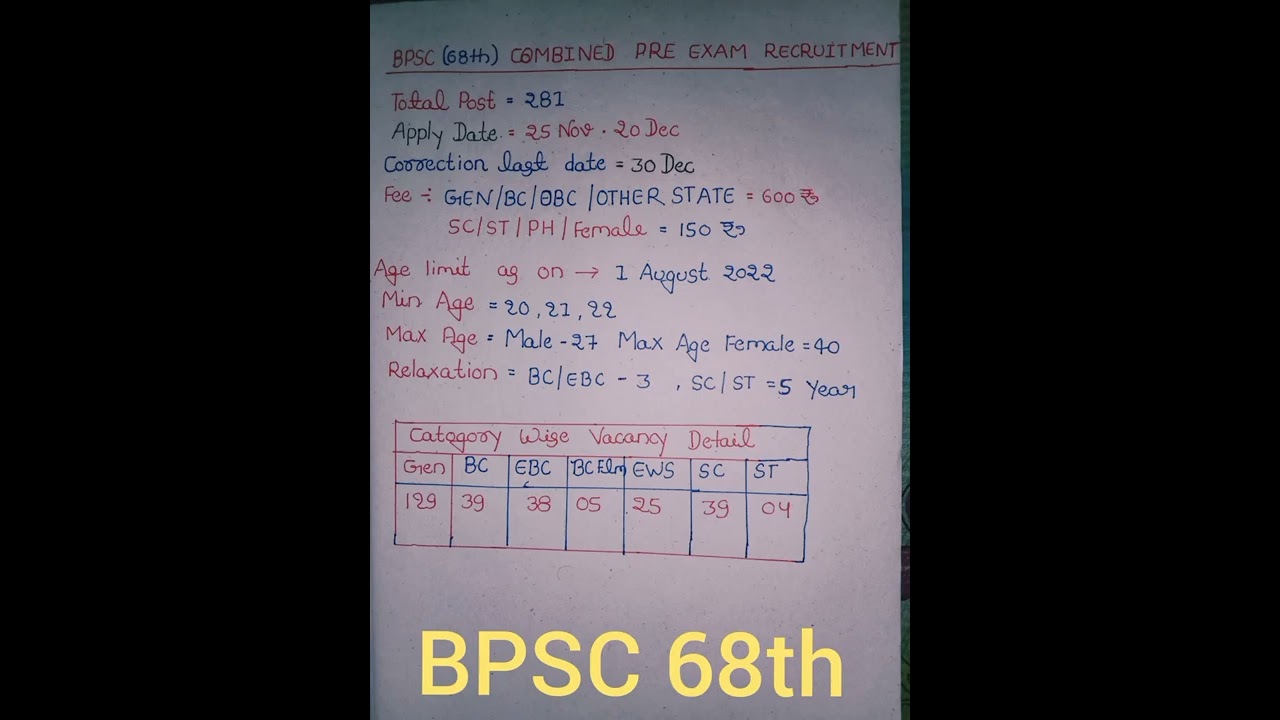 BPSC (68th) COMBINED PRE EXAM RECRUITMENT
Total Post = 281
Apply Date = 25 Nov - 20 Dec
Correction last date = 30 Dec
Fee ÷ GEN/BC/OBC/OTHER STATE = 600 ₹
SC/ST/PH/Female = 150 ₹
Age limit as on → 1 August 2022
Min Age = 20, 21, 22
Max Age = Male - 27 Max Age Female = 40
Relaxation = BC/EBC - 3 , SC/ST = 5 Year
Category Wise Vacancy Detail
Gen BC EBC BC Elm EWS SC ST
129 39 38 05 25 39 04
BPSC 68th